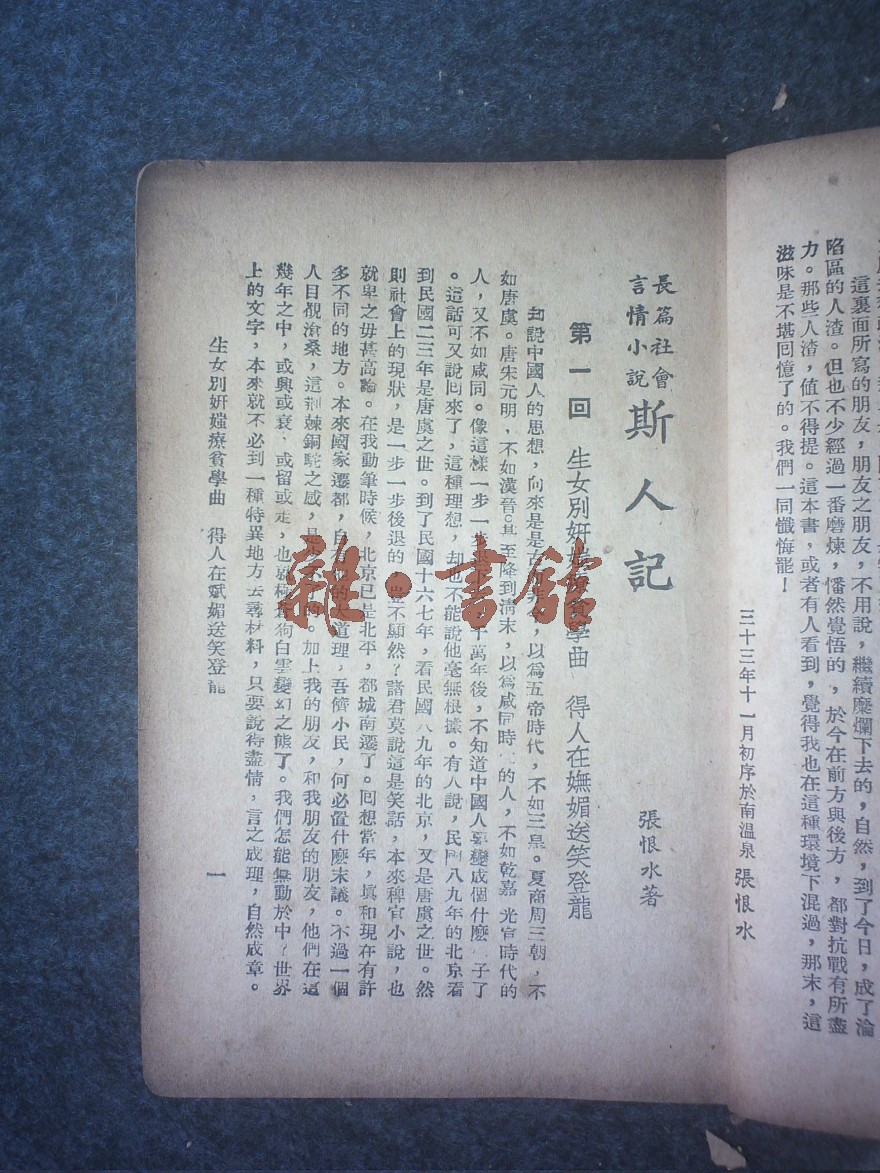 這裏面所寫的朋友，朋友之朋友，不用說，繼續糜爛下去的，自然，到了今日，成了淪
陷區的人渣。但也不少經過一番磨煉，憣然覺悟的，於今在前方與後方，都對抗戰有所盡
力。那些人渣，値不得提。這本書，或者有人看到，覺得我也在這種環境下混過，那末，這
滋味是不堪回憶了的。我們一同懺悔罷！
三十三年十一月初序於南溫泉 張恨水
長篇社會
言情小說
斯人記
張恨水著
第一回 生女別妍媸療貧學曲 得人在嫵媚送笑登龍
却說中國人的思想，向來是是古非今，以爲五帝時代，不如三皇。夏商周三朝，不
如唐虞。唐宋元明，不如漢晉。甚至降到淸末，以爲咸同時代的人，不如乾嘉 光宣時代的
人，又不如咸同。像這樣一步一步 千萬年後，不知道中國人要變成個什麽 子了
。這話可又說回來了，這種理想，却也不能說他毫無根據。有人說，民國八九年的北京看
到民國二三年是唐虞之世。到了民國十六七年，看民國八九年的北京，又是唐虞之世。然
則社會上的現狀，是一步一步後退的，豈不顯然？諸君莫說這是笑話，本來稗官小說，也
就卑之毋甚高論。在我動筆時候，北京已是北平，都城南遷了。回想當年，眞和現在有許
多不同的地方。本來國家遷都， 的大道理，吾儕小民，何必置什麽末議。不過一個
人目覩滄桑，這荆棘銅駝之感， 的。加上我的朋友，和我朋友的朋友，他們在這
幾年之中，或興或衰，或留或走，也就極蒼狗白雲變幻之態了。我們怎能無動於中？世界
上的文字，本來就不必到一種特異地方去尋材料，只要說得盡情，言之成理，自然成章。
生女別妍媸療貧學曲 得人在嫵媚送笑登龍
一
雜·書館